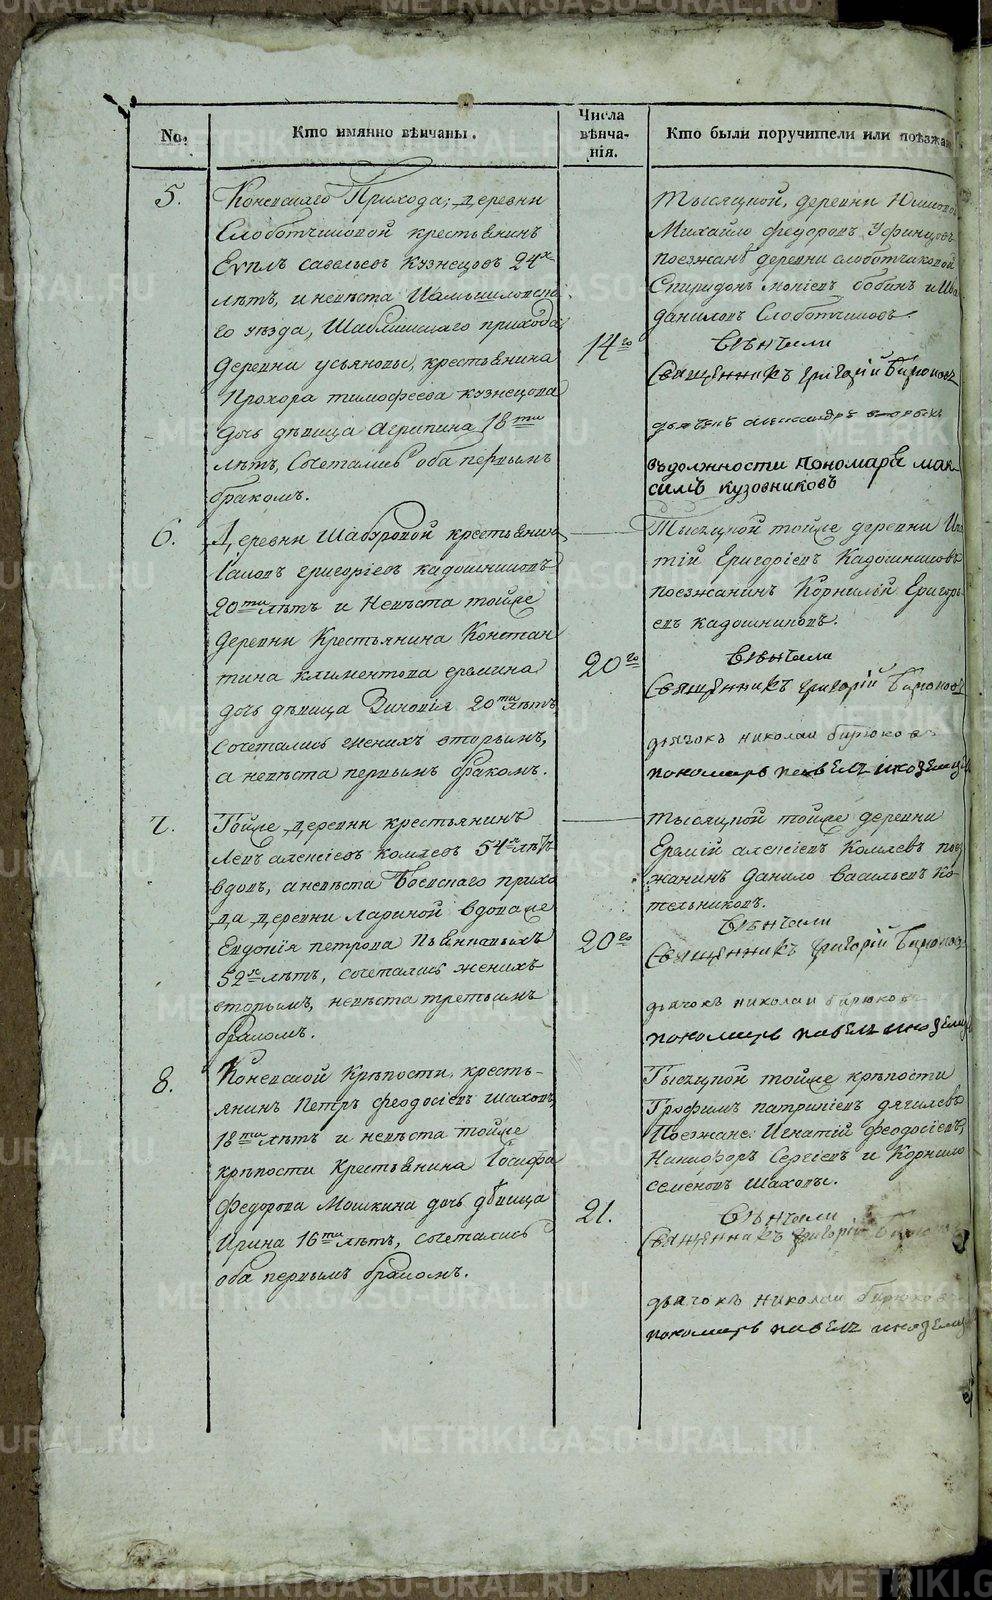 No.
Кто имянно вѣнчаны.
Числа
вѣнча-
нія.
Кто были поручители или поѣзжа
5.
Коневскаго Прихода; деревни
Слободчиковой крестьянинъ
Евплъ савельевъ кузнецовъ 24х
лѣтъ, и невѣста Камышловска
го уѣзда, Шаблишскаго прихода
деревни усьяновы, крестьянина
Прохора тимофеева кузнецова
дочь дѣвица Агрипина 18ти
лѣтъ, Сочетались оба первымъ
бракомъ.
14го
тысяцкой, деревни Юшково
Михайло федоровъ Уфинцовъ
поезжанѣ деревни слободчиковой
Спиридонъ бобинъ и Ива
даниловъ Слободчиковъ.
Вѣнчали
Священникъ григорій Бирюковъ
дьячекъ александръ
въ должности пономаря мак-
симъ кузовниковъ
6.
Деревни Шабуровой крестьянин
григорьевъ кадошниковъ
20ти лѣтъ и Невѣста тойже
деревни Крестьянина Констан
тина климентова еремина
дочь дѣвица Зиновія 20ти лѣтъ
сочетались женихъ вторымъ,
а невѣста первымъ бракомъ.
20го
Тысяцкой тойже деревни Ипа
тій Григорьевъ Кадошниковъ
поезжанинъ Корнилій Григорь
евъ кадошниковъ.
Вѣнчали
Священникъ григорій Бирюковъ
дьячокъ николаи бирюковъ
пономарь павелъ иноземцо
7.
Тойже деревни крестьянинъ
Левъ алексіевъ комлевъ 54х лѣтъ
вдовъ, а невѣста Боевскаго прихо
да деревни Лариной вдова же
Евдокія петрова Пьянковыхъ
52х лѣтъ, сочетались женихъ
вторымъ, невѣста третьимъ
бракомъ.
20го
тысяцкой тойже деревни
Еремій алексіевъ Комлевъ пое
жанинъ Данило васильевъ Ко-
тельниковъ.
Вѣнчали
Священникъ григорій Бирюков
дьячокъ николаи бирюковъ
пономарь павелъ иноземцо
8.
Коневской Крѣпости, кресть-
янинъ Петръ феодосіевъ шаховъ,
18ти лѣтъ и невѣста тойже
крѣпости Крестьянина Іосифа
Федорова Мошкина дочь дѣвица
Ирина 16ти лѣтъ, сочетались
оба первымъ бракомъ.
21.
Тысяцкой тойже крѣпости
Трофимъ патрикіевъ дягилевъ
Поезжане: Игнатій феодосіевъ,
Никифоръ Сергіевъ и Корнило
семеновъ Шаховы.
Вѣнчали
Священникъ григорій Бирюковъ
дьячокъ николаи бирюковъ
пономарь павелъ иноземцо
METRIKI.GASO-URAL.RU